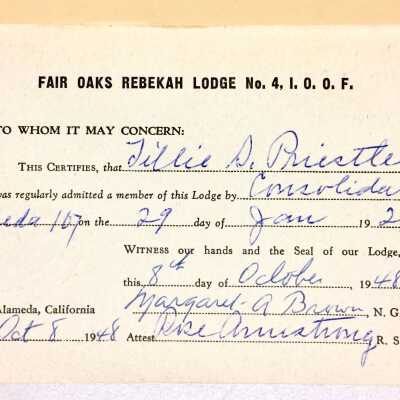 FAIR OAKS REBEKAH LODGE No. 4, I. O. O. F.
TO WHOM IT MAY CONCERN:
THIS CERTIFIES, that Tillie D. Priestle
was regularly admitted a member of this Lodge by Consolida
eda 167 on the 29 day of Jan 192
WITNESS our hands and the Seal of our Lodge,
this 8th day of October, 1948
Margaret A Brown, N. G
Alameda, California
Oct 8 1948 Attest Rose Armstrong R. S